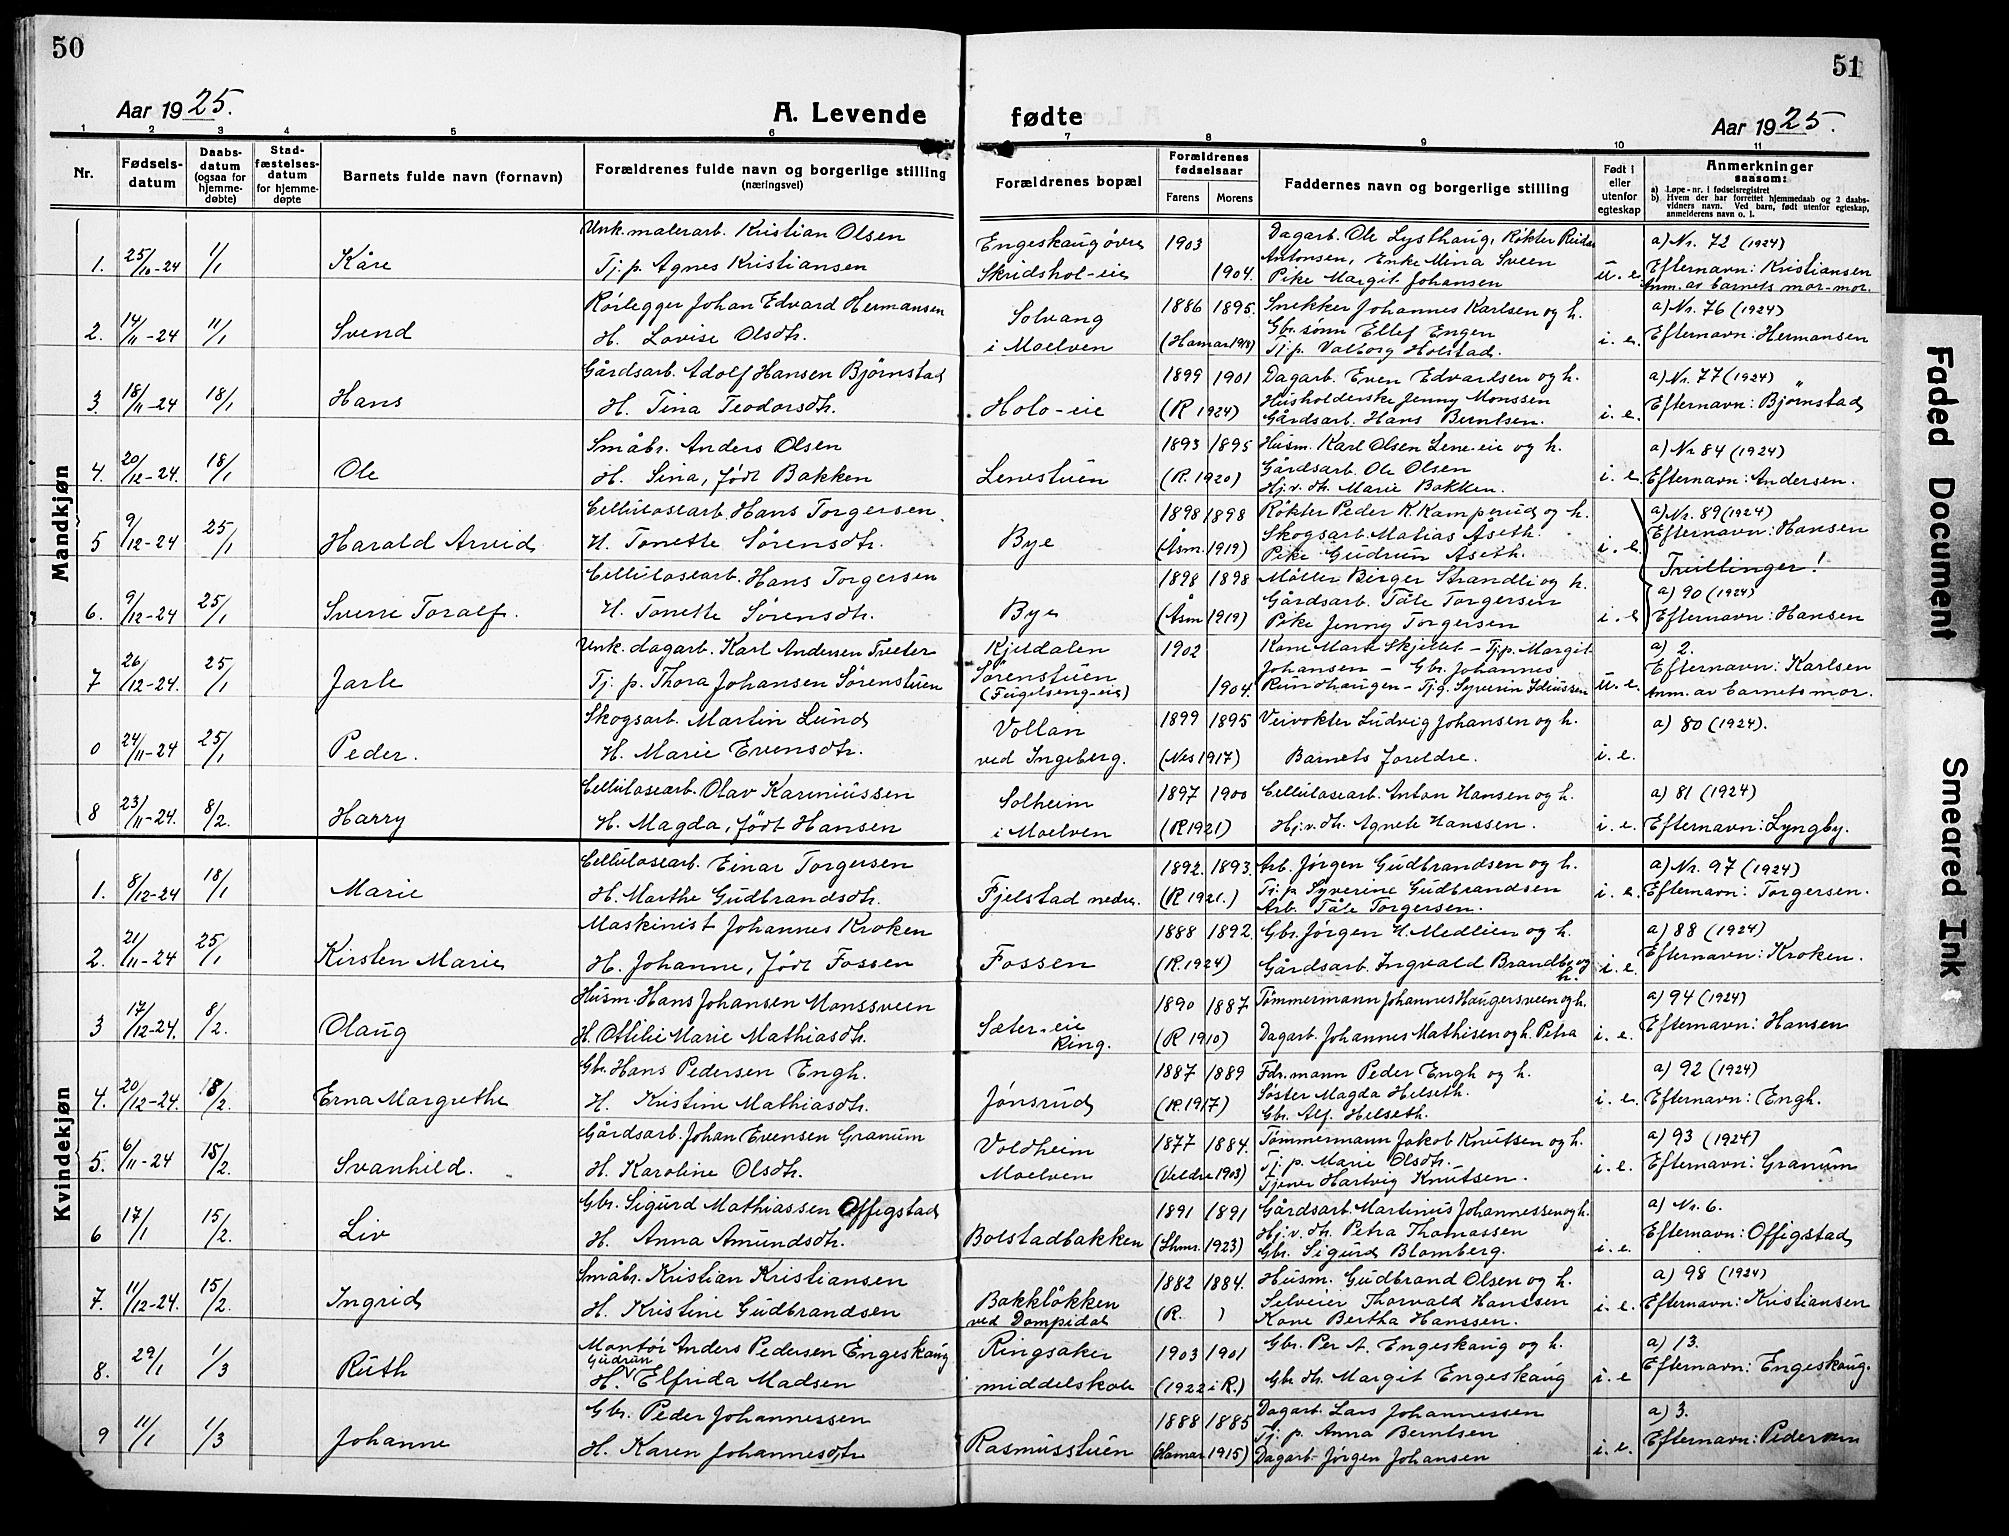 50
51
Aar 1925.
A. Levende
fødte
Aar 1925.
1 2 3 4 5 6 7 8 9 10 11
Nr.
Fødsels-
datum
Daabs-
datum
(ogsaa for
hjemme-
døbte)
Stad-
fæstelses-
datum
for hjemme-
døpte
Barnets fulde navn (fornavn)
Forældrenes fulde navn og borgerlige stilling
(næringsvei)
Forældrenes bopæl
Forældrenes
fødselsaar
Farens Morens
Faddernes navn og borgerlige stilling
Født i
eller
utenfor
egteskap
Anmerkninger
saasom:
a) Løpe-nr. i fødselsregistret
b) Hvem der har forrettet hjemmedaab og 2 daabs-
vidners navn. Ved barn, født utenfor egteskap,
anmelderens navn o. l.
Mandkjøn
Unk. malerarb. Kristian Olsen Engeskaug øvre 1903 Dagarb. Ole Lysthaug, Røkter Reidar a) Nr. 72 (1924)
1. 25/10-24 1/1 Kåre Tj. p. Agnes Kristiansen Skridshol-eie 1904. Antonsen, Enke Mina Sveen u. e. Efternavn: Kristiansen
Pike Margit Johansen Anm. av barnets mor-mor.
Rørlegger Johan Edvard Hermansen Solvang 1886 1895. Snekker Johannes Karlsen og h. a) Nr. 76 (1924)
2. 14/11-24 11/1 Svend H. Lovise Olsdtr. i Moelven (Hamar 1918) Gbr. sønn Ellef Engen i. e. Efternavn: Hermansen
Tj. p. Valborg Holstad.
Gårdsarb. Adolf Hansen Bjørnstad 1899 1901 Dagarb. Even Edvardsen og h. a) Nr. 77 (1924)
3. 18/11-24 18/1 Hans H. Tina Teodorsdtr. Holo-eie (R 1924) Husholderske Jenny Monssen i. e. Efternavn: Bjørnstad
Gårdsarb. Hans Berntsen.
Småbr. Anders Olsen 1893 1895 Husm. Karl Olsen Lene-eie og h. a) Nr 84 (1924)
4. 20/12-24. 18/1 Ole H. Sina, født Bakken Lenestuen (R. 1920) Gårdsarb. Ole Olsen i. e. Efternavn: Andersen.
Hj. v. dtr. Marie Bakken.
Cellulosearb. Hans Torgersen 1898 1898 Røkter Peder K. Kamperud og h. a) Nr. 89 (1924)
5 9/12-24 25/1 Harald Arvid H. Tonette Sørensdtr. Bye (Åsm. 1919) Skogsarb. Matias Åseth. i. e. Efternavn: Hansen
Pike Gudrun Åseth.
Tvillinger!
Cellulosearb. Hans Torgersen 1898 1898 Møller Birger Strandli og h. a) 90 (1924)
6. 9/12-24 25/1 Sverre Toralf. H. Tonette Sørensdtr. Bye (Åsm 1919) Gårdsarb. Tåle Torgersen i. e Efternavn: Hansen
Pike Jenny Torgersen
Unk. dagarb. Karl Andersen Treeter Kjeldalen 1902 Kone Mara Skjellet - Tj. p. Margit a) 2.
7 26/12-24. 25/1 Jarle Tj. p. Thora Johansen Sørenstuen Sørenstuen 1904. Johansen - Gbr. Johannes u. e. Efternavn: Karlsen
(Fuglseng-eie) Rundhaugen - Tj. g. Syverin Idiussen Anm. av barnets mor.
Skogsarb. Martin Lund Vollan 1899 1895 Veivokter Ludvig Johansen og h. a) 80 (1924).
0 24/11-24 25/1 Peder. H. Marie Evensdtr. ved Ingeberg. (Nes 1917) Barnets foreldre. i. e.
Cellulosearb. Olav Kareniussen Solheim 1897 1900 Cellulosearb. Anton Hansen og h. a) 81 (1924)
8 23/11-24. 8/2. Harry H. Magda, født Hansen i Moelven (R 1921) Hj. v. dtr. Agnete Hanssen. i. e. Efternavn: Lyngby.
Kvindekjøn
Cellulosearb. Einar Torgersen 1892. 1893. Arb. Jørgen Gudbrandsen og h. a) Nr. 97 (1924)
1. 8/12-24 18/1 Marie H. Marthe Gudbrandsdtr. Fjelstad nedre. (R 1921.) Tj. p. Syverine Gudbrandsen i. e. Efternavn: Torgersen.
Arb. Tåle Torgersen.
Maskinist Johannes Kroken 1888 1892. Gbr. Jørgen H. Medlien og h. a) 88 (1924)
2. 21/11-24 25/1 Kirsten Marie H. Johanne, født Fossen Fossen (R. 1924) Gårdsarb. Ingvald Brandby og h. i. e. Efternavn: Kroken.
Husm. Hans Johansen Monssveen Sæter-eie 1890 1887 Tømmermann Johannes Haugersveen og h. a) 94 (1924)
3 17/12-24. 8/2. Olaug H. Ottilie Marie Mathiasdtr. Ring. (R 1910) Dagarb. Johannes Mathisen og h. Petra i. e. Efternavn: Hansen
Gbr. Hans Pedersen Engh. 1887 1889 Fdr. mann Peder Engh og h. a) 92 (1924)
4. 20/12-24. 8/2. Erna Margrethe H. Kristine Mathiasdtr. Jønsrud (R. 1917) Søster Magda Helseth. i. e. Efternavn: Engh.
Gbr. Alf. Helseth.
Gårdsarb. Johan Evensen Granum Voldheim 1877 1884. Tømmermann Jakob Knutsen og h. a) 93 (1924)
5. 6/11-24 15/2. Svanhild. H. Karoline Olsdtr. Moelven (Veldre 1903) Tj. p. Marie Olsdtr. i. e. Efternavn: Granum
Tjener Hartvig Knutsen.
Gbr. Sigurd Mathiassen Offigstad 1891 1891 Gårdsarb. Martinus Johannessen og h. a) Nr. 6.
6 17/1 15/2. Liv H. Anna Amundsdtr. Bolstadbakken (Lhmr. 1923) Hj. v. dtr. Petra Thomassen i. e. Efternavn: Offigstad
Gbr. Sigurd Blomberg.
Småbr. Kristian Kristiansen Bakkløkken 1882 1884. Husm. Gudbrand Olsen og h. a) 98 (1924)
7. 11/12-24. 15/2. Ingrid H. Kristine Gudbrandsen ved Dompidal (R. ) Selveier Thorvald Hanssen i. e. Efternavn: Kristiansen
Kone Bertha Hanssen.
Montør Anders Pedersen Engeskaug Ringsaker 1903 1901 Gbr. Per A. Engeskaug og h. a) 13.
8. 29/1 1/3 Ruth H. Gudrun Elfrida Madsen middelskole (1922 i R.) Gbr. dtr. Margit Engeskaug i. e Efternavn: Engeskaug.
Gbr. Peder Johannessen 1888 1885 Dagarb. Lars Johannessen a) 3.
9 11/1 1/3 Johanne H. Karen Johannesdtr Rasmusstuen (Hamar 1915) Tj. p. Anna Berntsen i. e. Efternavn: Pedersen
Dagarb. Jørgen Johansen
Faded Document
Smeared Ink